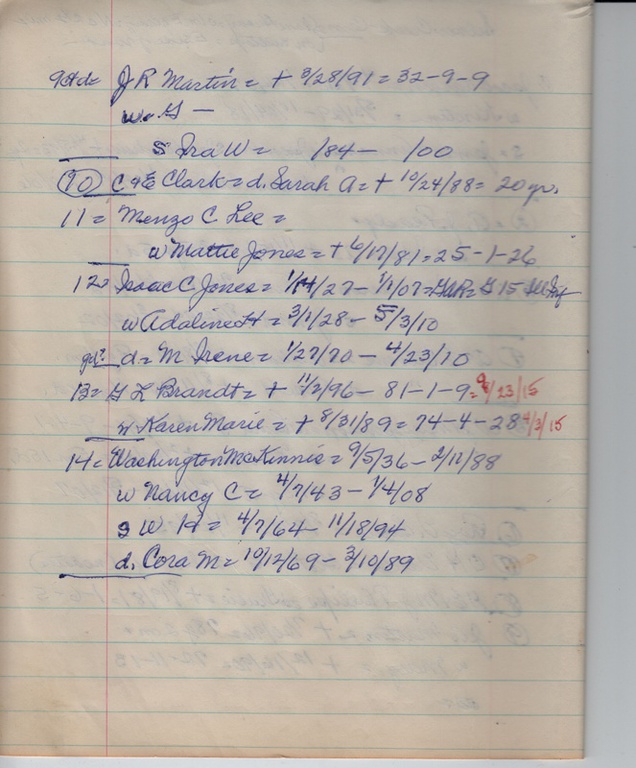 J R Martin = + 3/28/91 = 32-9-9
w = G —
s Ira W = /84 — /00
(10) C & E Clark = d. Sarah A = + 10/24/88 = 20 yr.
11 = Menzo C Lee =
w Mattie Jones = + 6/17/81 = 25-1-26
12 = Isaac C Jones = 1/14/27 - 1/1/07 = GAR = G 15 Inf
w Adaline H = 3/1/28 — 5/3/10
d = M Irene = 1/27/70 — 4/23/10
13 = G L Brandt = + 11/2/96 — 81-1-9 = 9/23/15
w Karen Marie = + 8/31/89 = 74-4-28 4/3/15
14 = Washington McKinnis = 9/5/36 - 2/11/88
w Nancy C = 4/7/43 - 1/4/08
s W H = 4/7/64 - 11/18/94
d. Cora M = 10/12/69 - 3/10/89